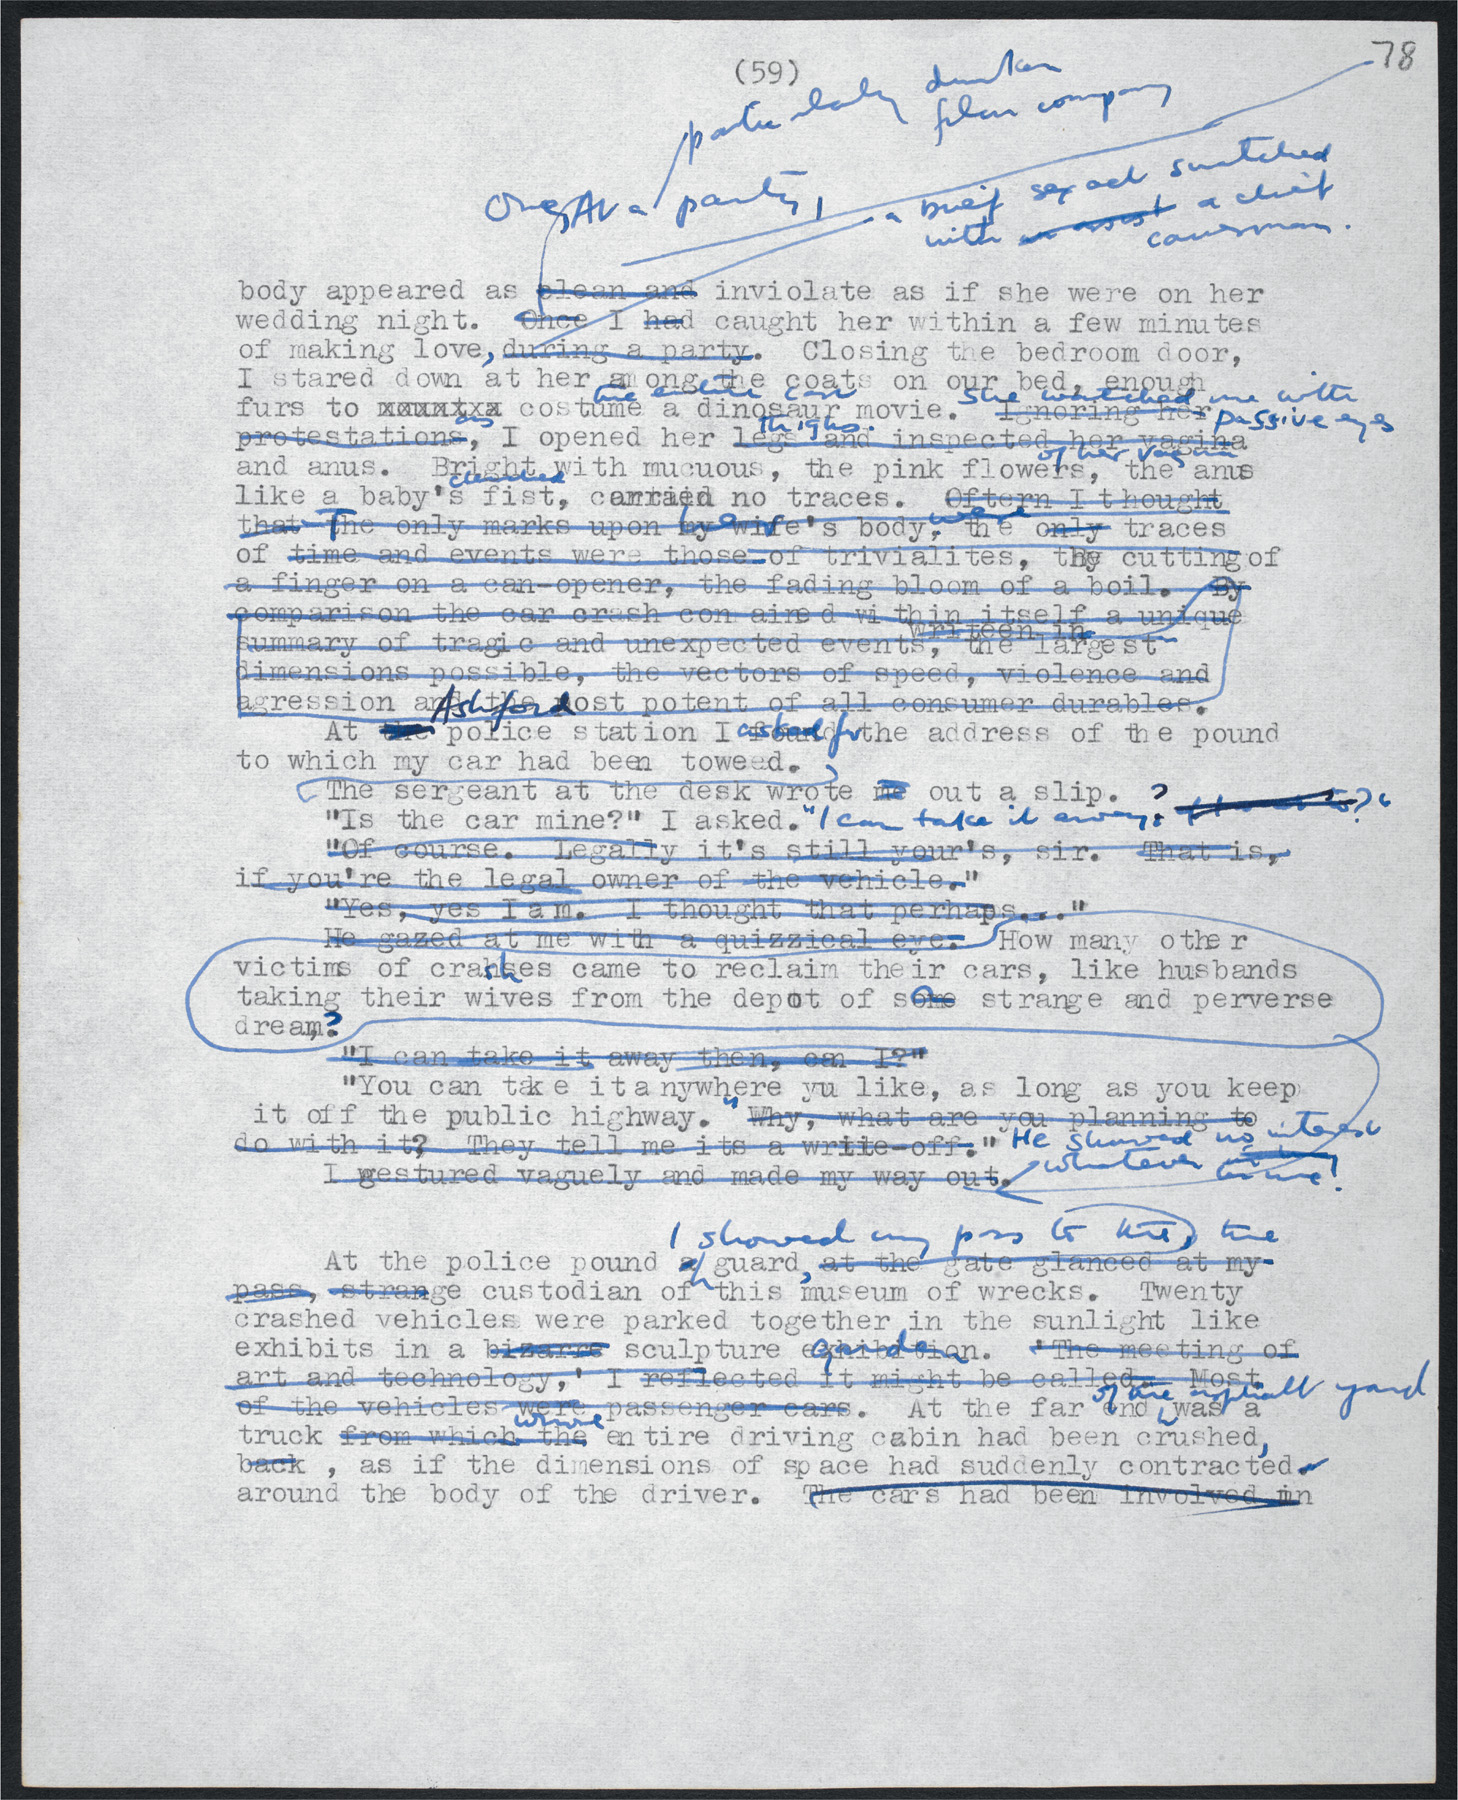 78
(59)
particularly drunken
film company
Once, At a party,
a brief sex act snatched
with an assist a chief
cameraman.
body appeared as clean and inviolate as if she were on her
wedding night. Once I had caught her within a few minutes
of making love, during a party. Closing the bedroom door,
I stared down at her among the coats on our bed, enough
the entire cast She watched me with
furs to xxuxtxxx costume a dinosaur movie. Ignoring her passive eyes
as thighs.
protestations, I opened her legs and inspected her vagina
of her vagina
and anus. Bright with mucuous, the pink flowers, the anus
clenched
like a baby's fist, carried no traces. Oftern I thought
her were
that The only marks upon my wife's body, the only traces
of time and events were those of trivialites, the cutting of
a finger on a can-opener, the fading bloom of a boil. By
comparison the car crash con aired within itself a unique
writeen in
summary of tragic and unexpected events, the largest
dimensions possible, the vectors of speed, violence and
agression and the most potent of all consumer durables.
Ashford
At the police station I found asked for the address of the pound
to which my car had been toweed.
The sergeant at the desk wrote me out a slip.
"Is the car mine?" I asked. "I can take it away?
"Of course. Legally it's still your's, sir. That is,
if you're the legal owner of the vehicle."
"Yes, yes I am. I thought that perhaps..."
He gazed at me with a quizzical eye. How many other
victims of crashes came to reclaim their cars, like husbands
taking their wives from the depot of some strange and perverse
dream?
"I can take it away then, can I?"
"You can take it anywhere yu like, as long as you keep
it off the public highway." Why, what are you planning to
do with it? They tell me its a write-off." He showed no interest
whatever in me!
I gestured vaguely and made my way out.
I showed my pass to the, the
At the police pound a guard, at the gate glanced at my
pass, strange custodian of this museum of wrecks. Twenty
crashed vehicles were parked together in the sunlight like
garden
exhibits in a bizarre sculpture exhibition. 'The meeting of
art and technology,' I reflected it might be called. Most
of the asphalt yard
of the vehicles were passenger cars. At the far end was a
whose
truck from which the entire driving cabin had been crushed,
back , as if the dimensions of space had suddenly contracted
around the body of the driver. The cars had been involved in